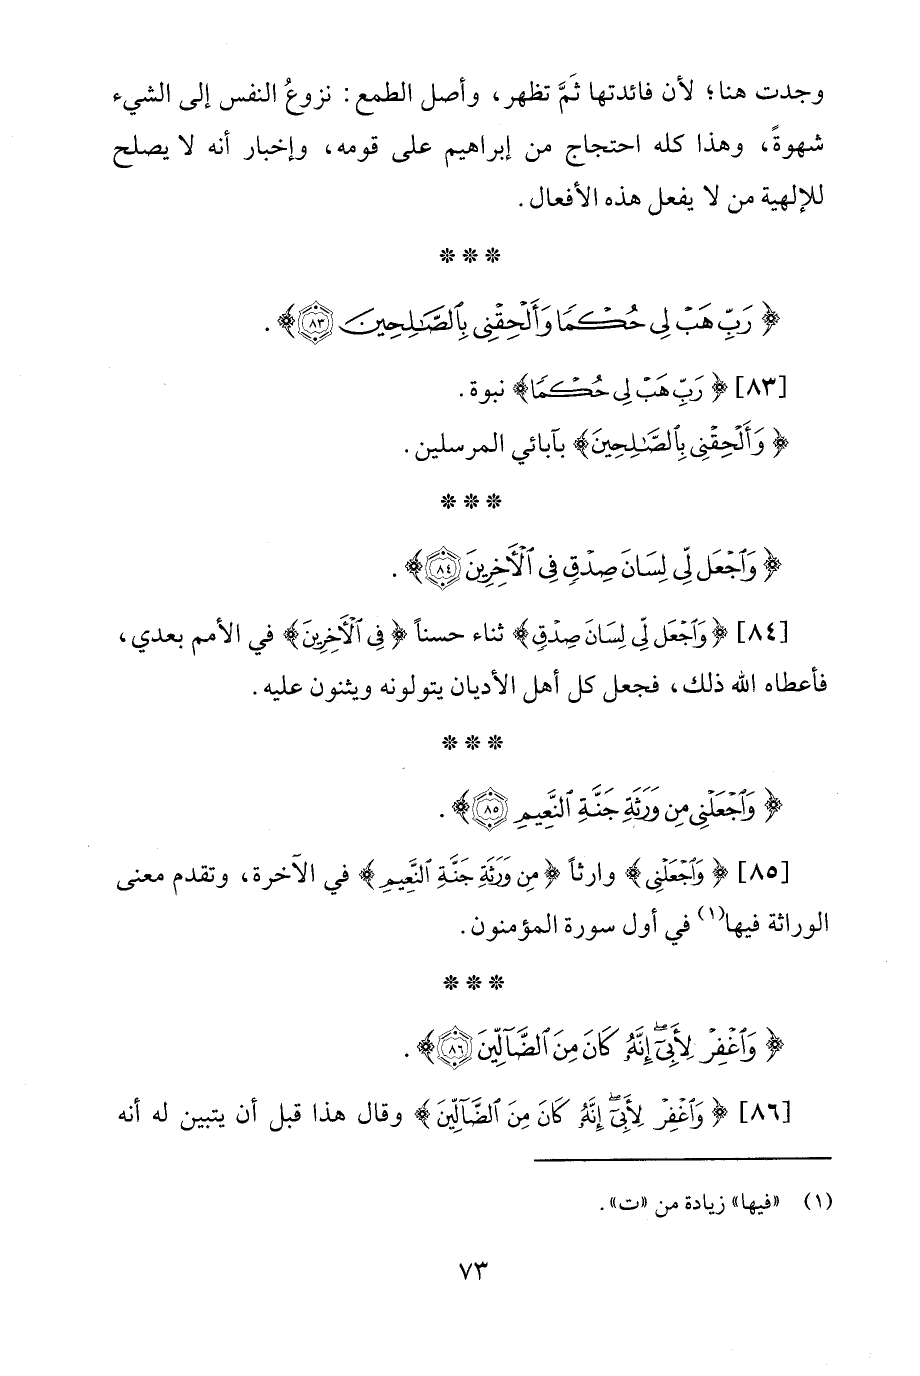 وجدت هنا؛ لأن فائدتها ثَمَّ تظهر، وأصل الطمع: نزوعُ النفس إلى الشيء
شهوةً، وهذا كله احتجاج من إبراهيم على قومه، وإخبار أنه لا يصلح
للإلهية من لا يفعل هذه الأفعال.
***
﴿رَبِّ هَبْ لِي حُكْمًا وَأَلْحِقْنِي بِالصَّٰلِحِينَ ٨٣﴾.
[٨٣] ﴿رَبِّ هَبْ لِي حُكْمًا﴾ نبوة.
﴿وَأَلْحِقْنِي بِالصَّٰلِحِينَ﴾ بآبائي المرسلين.
***
﴿وَٱجْعَل لِّي لِسَانَ صِدْقٍ فِي ٱلْآخِرِينَ ٨٤﴾.
[٨٤] ﴿وَٱجْعَل لِّي لِسَانَ صِدْقٍ﴾ ثناء حسناً ﴿فِي ٱلْآخِرِينَ﴾ في الأمم بعدي،
فأعطاه الله ذلك، فجعل كل أهل الأديان يتولونه ويثنون عليه.
***
﴿وَٱجْعَلْنِي مِن وَرَثَةِ جَنَّةِ ٱلنَّعِيمِ ٨٥﴾.
[٨٥] ﴿وَٱجْعَلْنِي﴾ وارثاً ﴿مِن وَرَثَةِ جَنَّةِ ٱلنَّعِيمِ﴾ في الآخرة، وتقدم معنى
الوراثة فيها(١) في أول سورة المؤمنون.
***
﴿وَٱغْفِرْ لِأَبِيٓ إِنَّهُۥ كَانَ مِنَ ٱلضَّآلِّينَ ٨٦﴾.
[٨٦] ﴿وَٱغْفِرْ لِأَبِيٓ إِنَّهُۥ كَانَ مِنَ ٱلضَّآلِّينَ﴾ وقال هذا قبل أن يتبين له أنه
(١) «فيها» زيادة من «ت».
٧٣